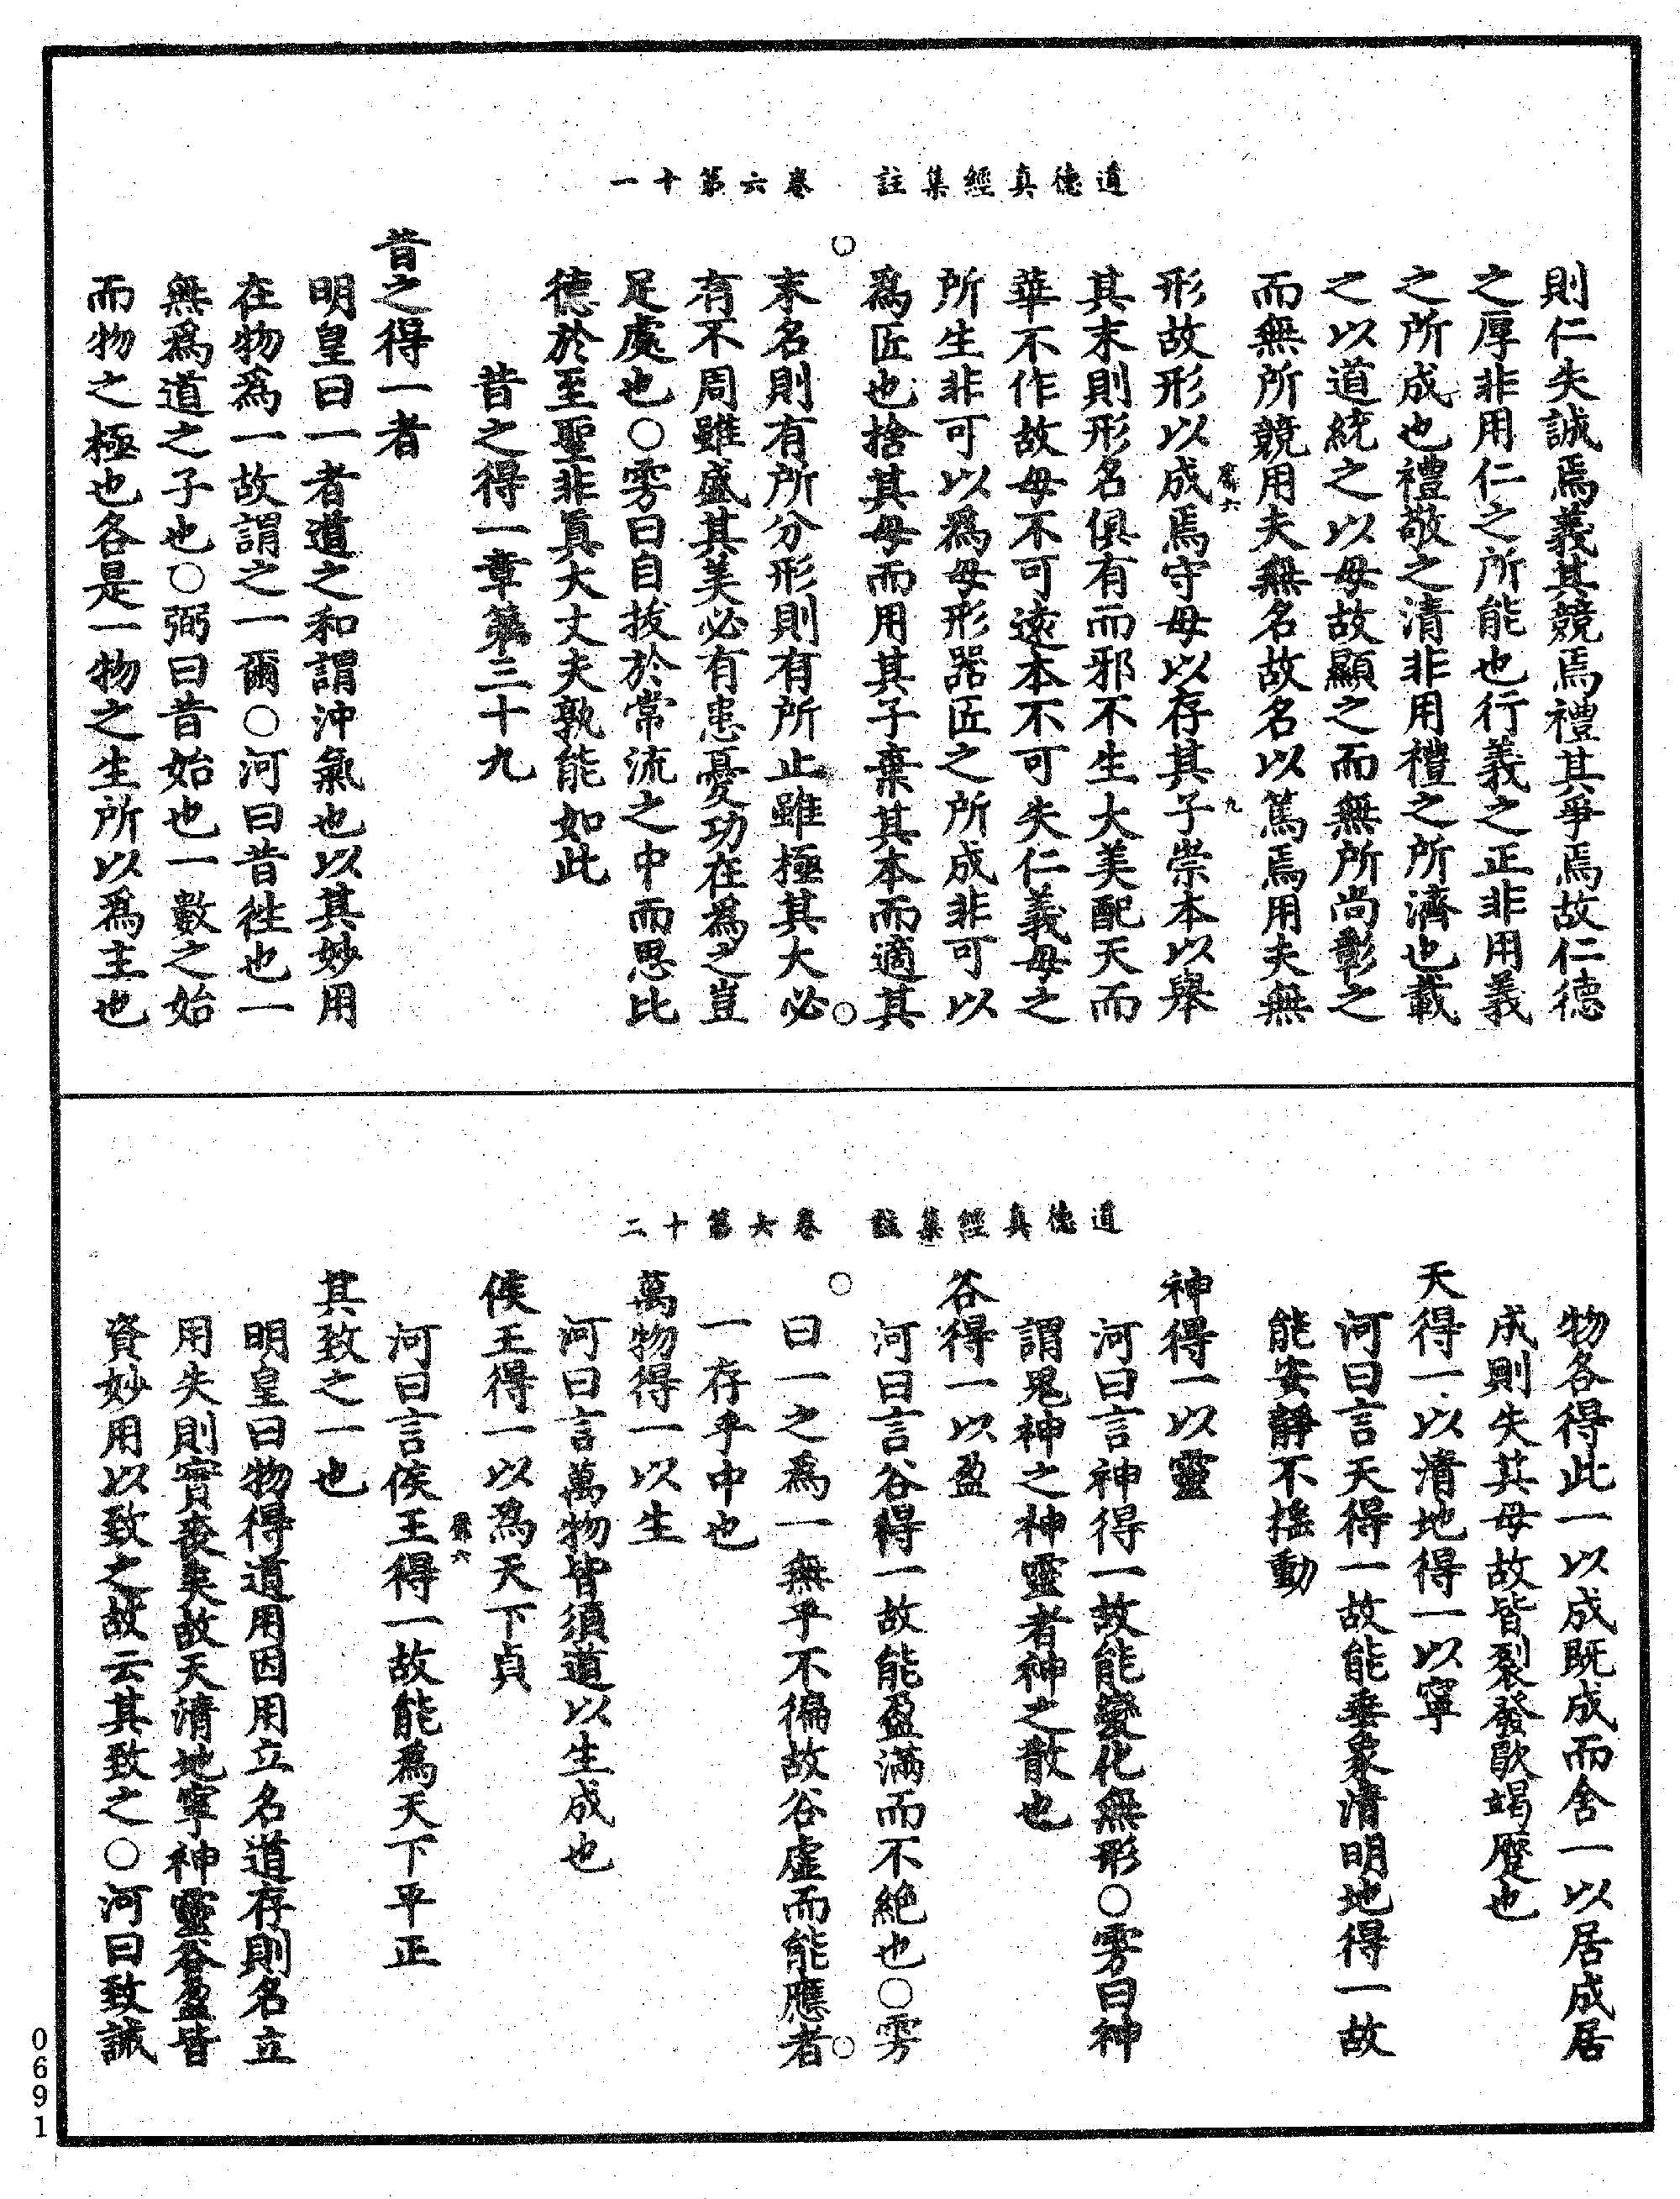 道德真經集註　卷六第十一
則仁失誠焉義其競焉禮其爭焉故仁德
之厚非用仁之所能也行義之正非用義
之所成也禮敬之清非用禮之所濟也載
之以道統之以母故顯之而無所尚彰之
而無所競用夫無名故名以篤焉用夫無
形故形以成焉守母以存其子崇本以舉
其末則形名俱有而邪不生大美配天而
華不作故母不可遠本不可失仁義母之
所生非可以爲母形器匠之所成非可以
爲匠也捨其母而用其子棄其本而適其
末名則有所分形則有所止雖極其大必
有不周雖盛其美必有患憂功在爲之豈
足處也○雱曰自拔於常流之中而思比
德於至聖非眞大丈夫孰能如此
昔之得一章第三十九
昔之得一者
明皇曰一者道之和謂沖氣也以其妙用
在物爲一故謂之一爾○河曰昔徃也一
無爲道之子也○弼曰昔始也一數之始
而物之極也各是一物之生所以爲主也
道德真經集註　卷六第十二
物各得此一以成旣成而舍一以居成居
成則失其母故皆裂發歇竭蹷也
天得一以清地得一以寧
河曰言天得一故能垂象清明地得一故
能安靜不搖動
神得一以靈
河曰言神得一故能變化無形○雱曰神
謂鬼神之神靈者神之散也
谷得一以盈
河曰言谷得一故能盈滿而不絕也○雱
曰一之爲一無乎不徧故谷虛而能應者
一存乎中也
萬物得一以生
河曰言萬物皆須道以生成也
侯王得一以爲天下貞
河曰言侯王得一故能爲天下平正
其致之一也
明皇曰物得道用因用立名道存則名立
用失則實喪矣故天清地寧神靈谷盈皆
資妙用以致之故云其致之○河曰致誡
0691